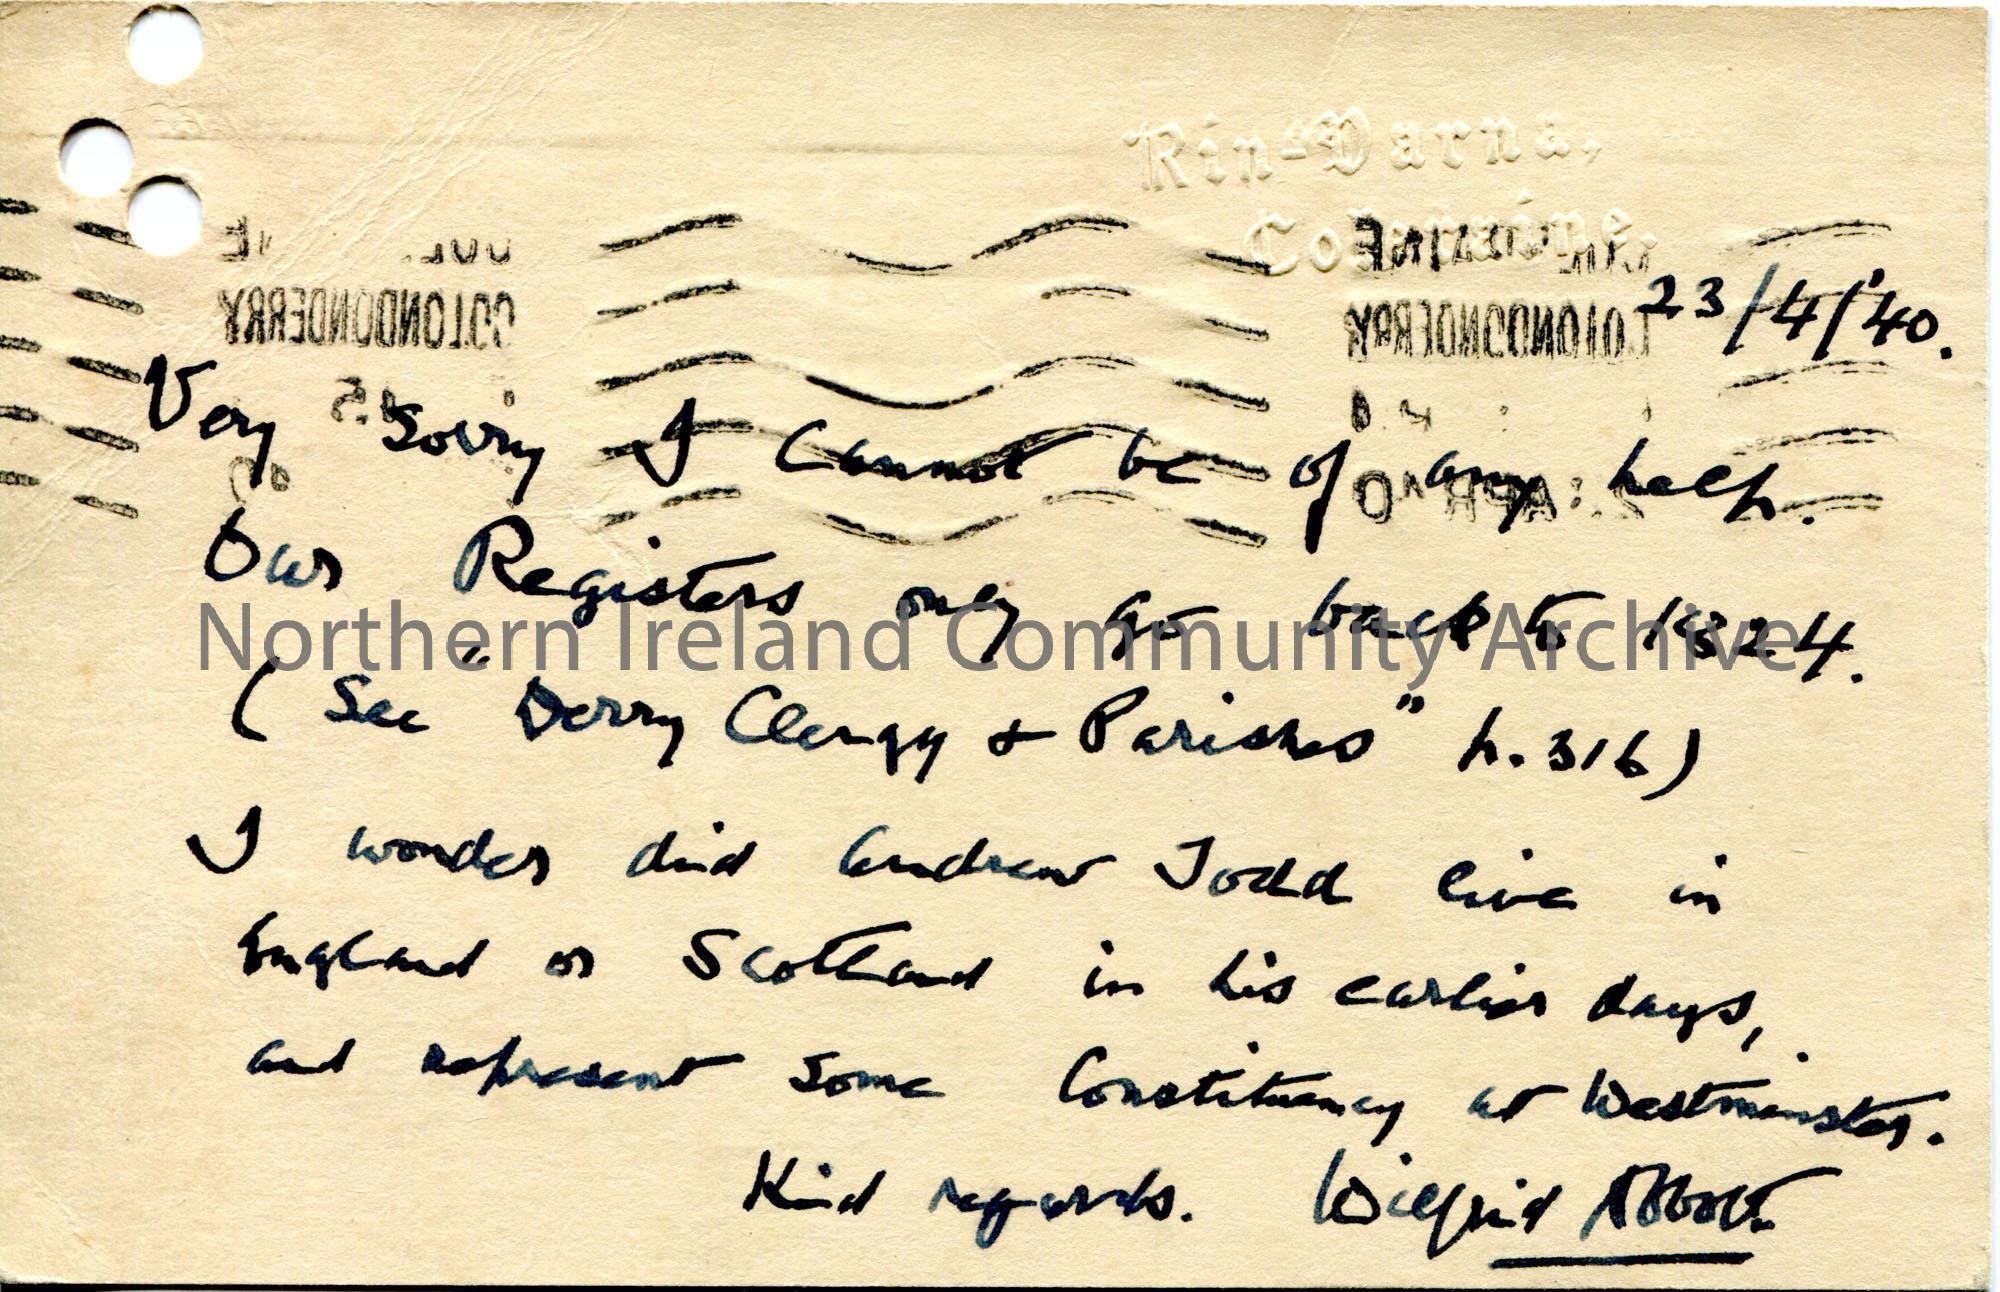 Rin-Varna,
Coleraine.
23/4/'40.
Very sorry I cannot be of any help.
Our Registers only go back to 1824.
(See "Derry Clergy & Parishes" p. 316)
I wonder did Andrew Todd live in
England or Scotland in his earlier days,
and represent some Constituency at Westminster.
Kind regards. Wilfrid Abbott
Northern Ireland Community Archive
CO LONDONDERRY
CO LONDONDERRY